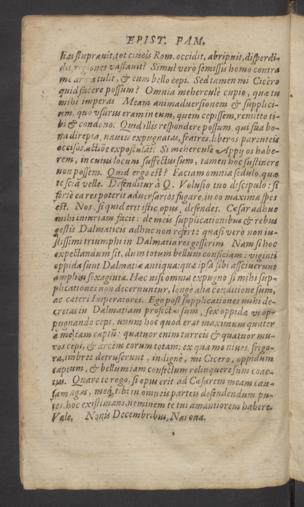 EPIST. FAM.
lias stupravit, tot civeis Rom. occidit, abripuit, disperdi-
dit, regiones vastavit? Simul vero semissis homo contra
me arma tulit, & eum bello cepi. Sed tamen mi Cicero
quid facere possum? Omnia mehercule cupio, quæ tu
mihi imperas. Meam animadversionem & supplici-
um, quo usurus eram in eum, quem cepissem, remitto ti-
bi & condono. Quid illis respondere possum, qui sua bo-
na direpta, naveis expugnatas, fratres, liberos, parenteis
occisos, actione expostulant? Si mehercule Appij os habe-
rem, in cuius locum suffectus sum, tamen hoc sustinere
non possem. Quid ergo est? Faciam omnia sedulo, quæ
te sciã velle. Defenditur à Q. Volusio tuo discipulo: si
forte ea res poterit adversarios fugare, in eo maxima spes
est. Nos, si quid erit istic opus, defendes. Cæsar adhuc
mihi iniuriam facit: de meis supplicationibus & rebus
gestis Dalmaticis adhuc non refert: quasi vero non iu-
stissimi triumphi in Dalmatia res gesserim. Nam si hoc
expectandum sit, dum totum bellum conficiam: viginti
oppida sunt Dalmatiæ antiqua: quæ ipsi sibi asciverunt
amplius sexaginta. Hæc nisi omnia expugno si mihi sup-
plicationes non decernuntur, longe alia conditione sum,
ac ceteri Imperatores. Ego post supplicationes mihi de-
cretas in Dalmatiam profectus sum, sex oppida vi op-
pugnando cepi. unum hoc quod erat maximum quater
à me iam captũ: quatuor enim turreis & quatuor mu-
ros cepi, & arcem eorum totam: ex qua me nives, frigo-
ra, imbres detruserunt, indigne, mi Cicero, oppidum
captum, & bellum iam confectum relinquere sum coac-
tus. Quare te rogo, si opus erit ad Cæsarem meam cau-
sam agas, meq; tibi in omneis parteis defendendum pu-
tes: hoc existimans, neminem te tui amantiorem habere.
Vale. Nonis Decembribus, Narona.